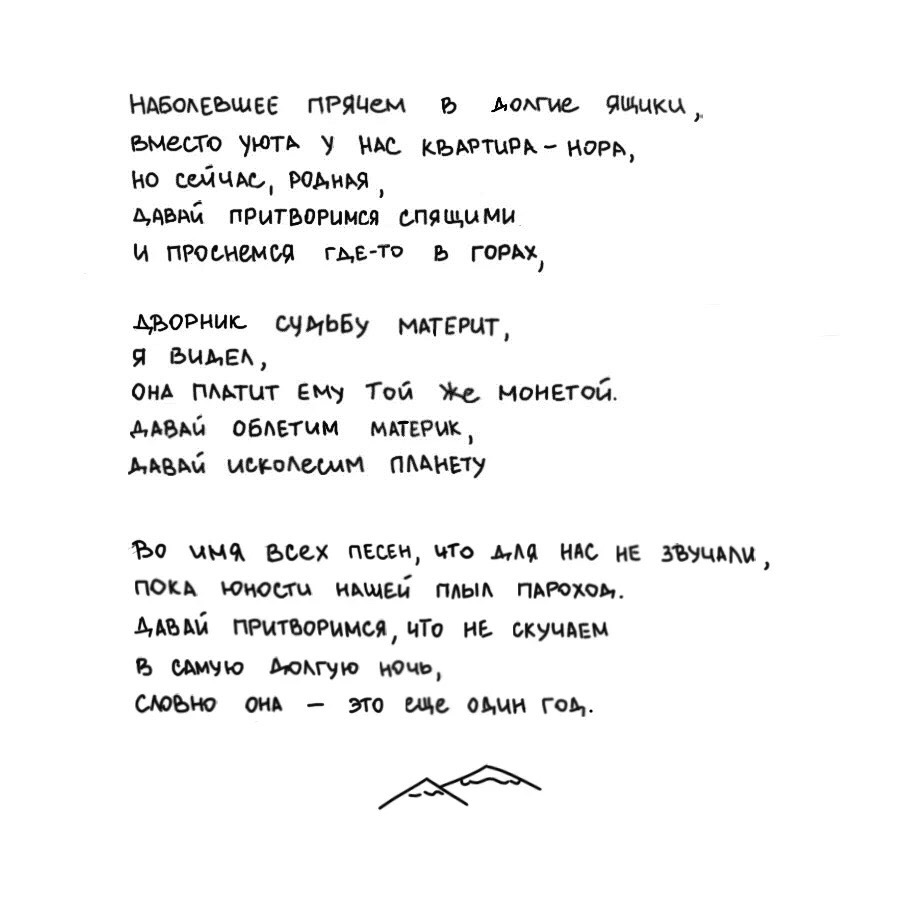 НАБОЛЕВШЕЕ ПРЯЧЕМ В ДОЛГИЕ ЯЩИКИ,
ВМЕСТО УЮТА У НАС КВАРТИРА – НОРА,
НО СЕЙЧАС, РОДНАЯ,
ДАВАЙ ПРИТВОРИМСЯ СПЯЩИМИ
И ПРОСНЕМСЯ ГДЕ-ТО В ГОРАХ,
ДВОРНИК СУДЬБУ МАТЕРИТ,
Я ВИДЕЛ,
ОНА ПЛАТИТ ЕМУ ТОЙ ЖЕ МОНЕТОЙ.
ДАВАЙ ОБЛЕТИМ МАТЕРИК,
ДАВАЙ ИСКОЛЕСИМ ПЛАНЕТУ
ВО ИМЯ ВСЕХ ПЕСЕН, ЧТО ДЛЯ НАС НЕ ЗВУЧАЛИ,
ПОКА ЮНОСТИ НАШЕЙ ПЛЫЛ ПАРОХОД.
ДАВАЙ ПРИТВОРИМСЯ, ЧТО НЕ СКУЧАЕМ
В САМУЮ ДОЛГУЮ НОЧЬ,
СЛОВНО ОНА – ЭТО ЕЩЕ ОДИН ГОД.